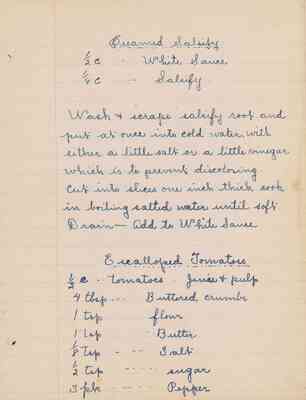 Creamed Salsify
1/2 c - - White Sauce
1/4 c - - Salsify
Wash & scrape salsify root and
put at once into cold water with
either a little salt or a little vinegar
which is to prevent discoloring
Cut into slices one inch thick cook
in boiling salted water until soft
Drain - Add to White Sauce
Escalloped Tomatoes
1/2 c - - tomatoes - Juice & pulp
4 tbsp - - Buttered crumbs
1 tsp flour
1 tsp Butter
1/8 tsp - - - Salt
1/2 tsp - - - - sugar
3 pk - - - Pepper